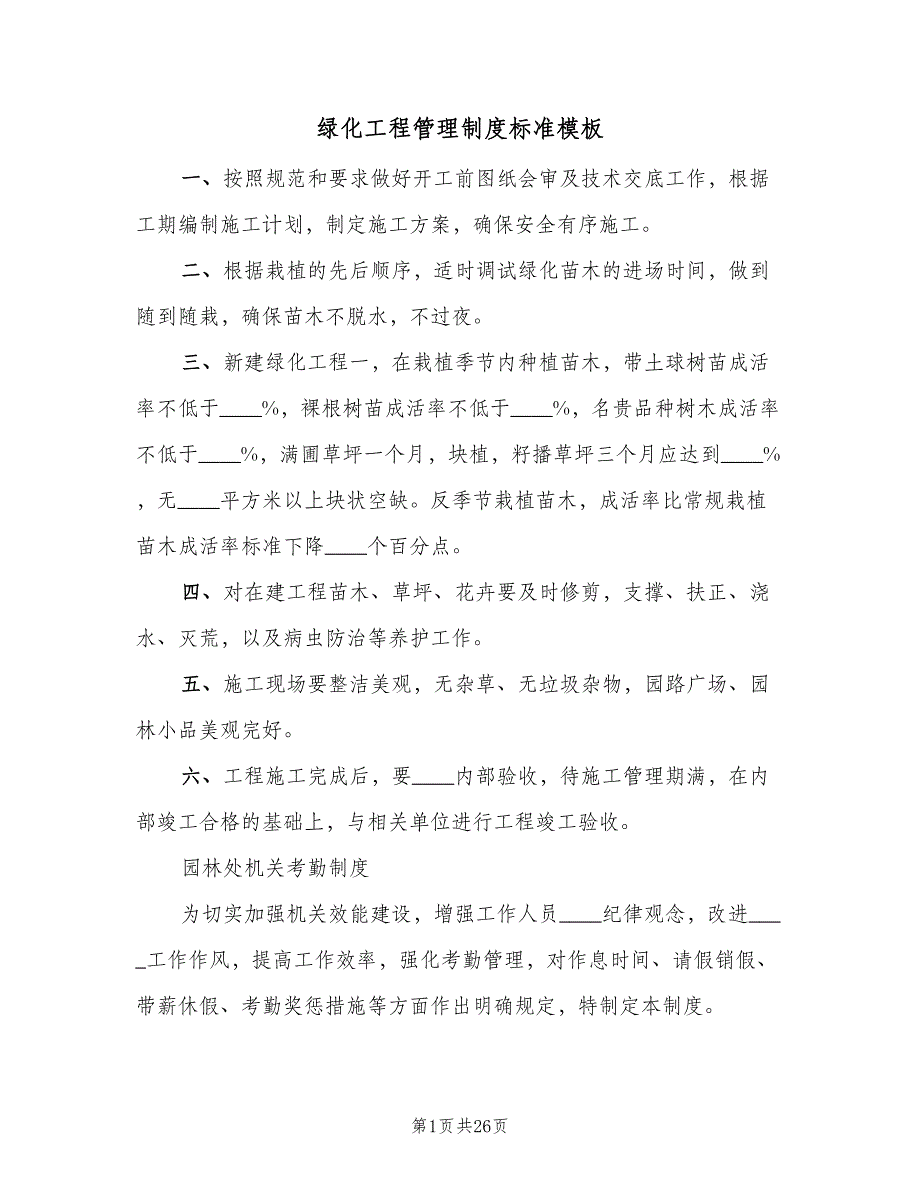 绿化工程管理制度标准模板
一、按照规范和要求做好开工前图纸会审及技术交底工作，根据
工期编制施工计划，制定施工方案，确保安全有序施工。
二、根据栽植的先后顺序，适时调试绿化苗木的进场时间，做到
随到随栽，确保苗木不脱水，不过夜。
三、新建绿化工程一，在栽植季节内种植苗木，带土球树苗成活
率不低于____%，裸根树苗成活率不低于____%，名贵品种树木成活率
不低于____%，满圃草坪一个月，块植，籽播草坪三个月应达到____%
，无____平方米以上块状空缺。反季节栽植苗木，成活率比常规栽植
苗木成活率标准下降____个百分点。
四、对在建工程苗木、草坪、花卉要及时修剪，支撑、扶正、浇
水、灭荒，以及病虫防治等养护工作。
五、施工现场要整洁美观，无杂草、无垃圾杂物，园路广场、园
林小品美观完好。
六、工程施工完成后，要____内部验收，待施工管理期满，在内
部竣工合格的基础上，与相关单位进行工程竣工验收。
园林处机关考勤制度
为切实加强机关效能建设，增强工作人员____纪律观念，改进___
_工作作风，提高工作效率，强化考勤管理，对作息时间、请假销假、
带薪休假、考勤奖惩措施等方面作出明确规定，特制定本制度。
第1页共26页